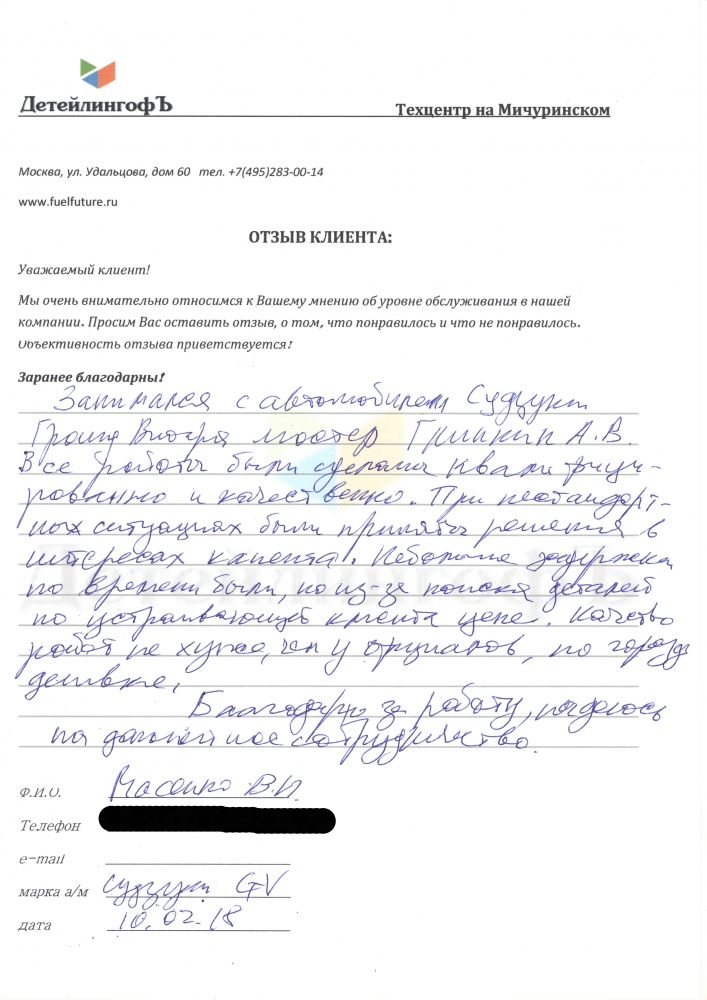 ДетейлингофЪ
Техцентр на Мичуринском
Москва, ул. Удальцова, дом 60 тел. +7(495)283-00-14
www.fuelfuture.ru
ОТЗЫВ КЛИЕНТА:
Уважаемый клиент!
Мы очень внимательно относимся к Вашему мнению об уровне обслуживания в нашей
компании. Просим Вас оставить отзыв, о том, что понравилось и что не понравилось.
Объективность отзыва приветствуется!
Заранее благодарны!
Занимался с автомобилем Судзуки
Гранд Витара мастер А.В.
Все работы были сделаны квалифици-
рованно и качественно. При нестандарт-
ных ситуациях были приняты решения в
интересах клиента. Небольшие задержки
по времени были, но из-за поиска деталей
по устраивающей клиента цене. Качество
работ не хуже, чем у официалов, но гораздо
дешевле.
Благодарю за работу, надеюсь
на дальнейшее сотрудничество.
Ф.И.О. В.И.
Телефон
e-mail
марка а/м Судзуки GV
дата 10.02.18
ДетейлингофЪ